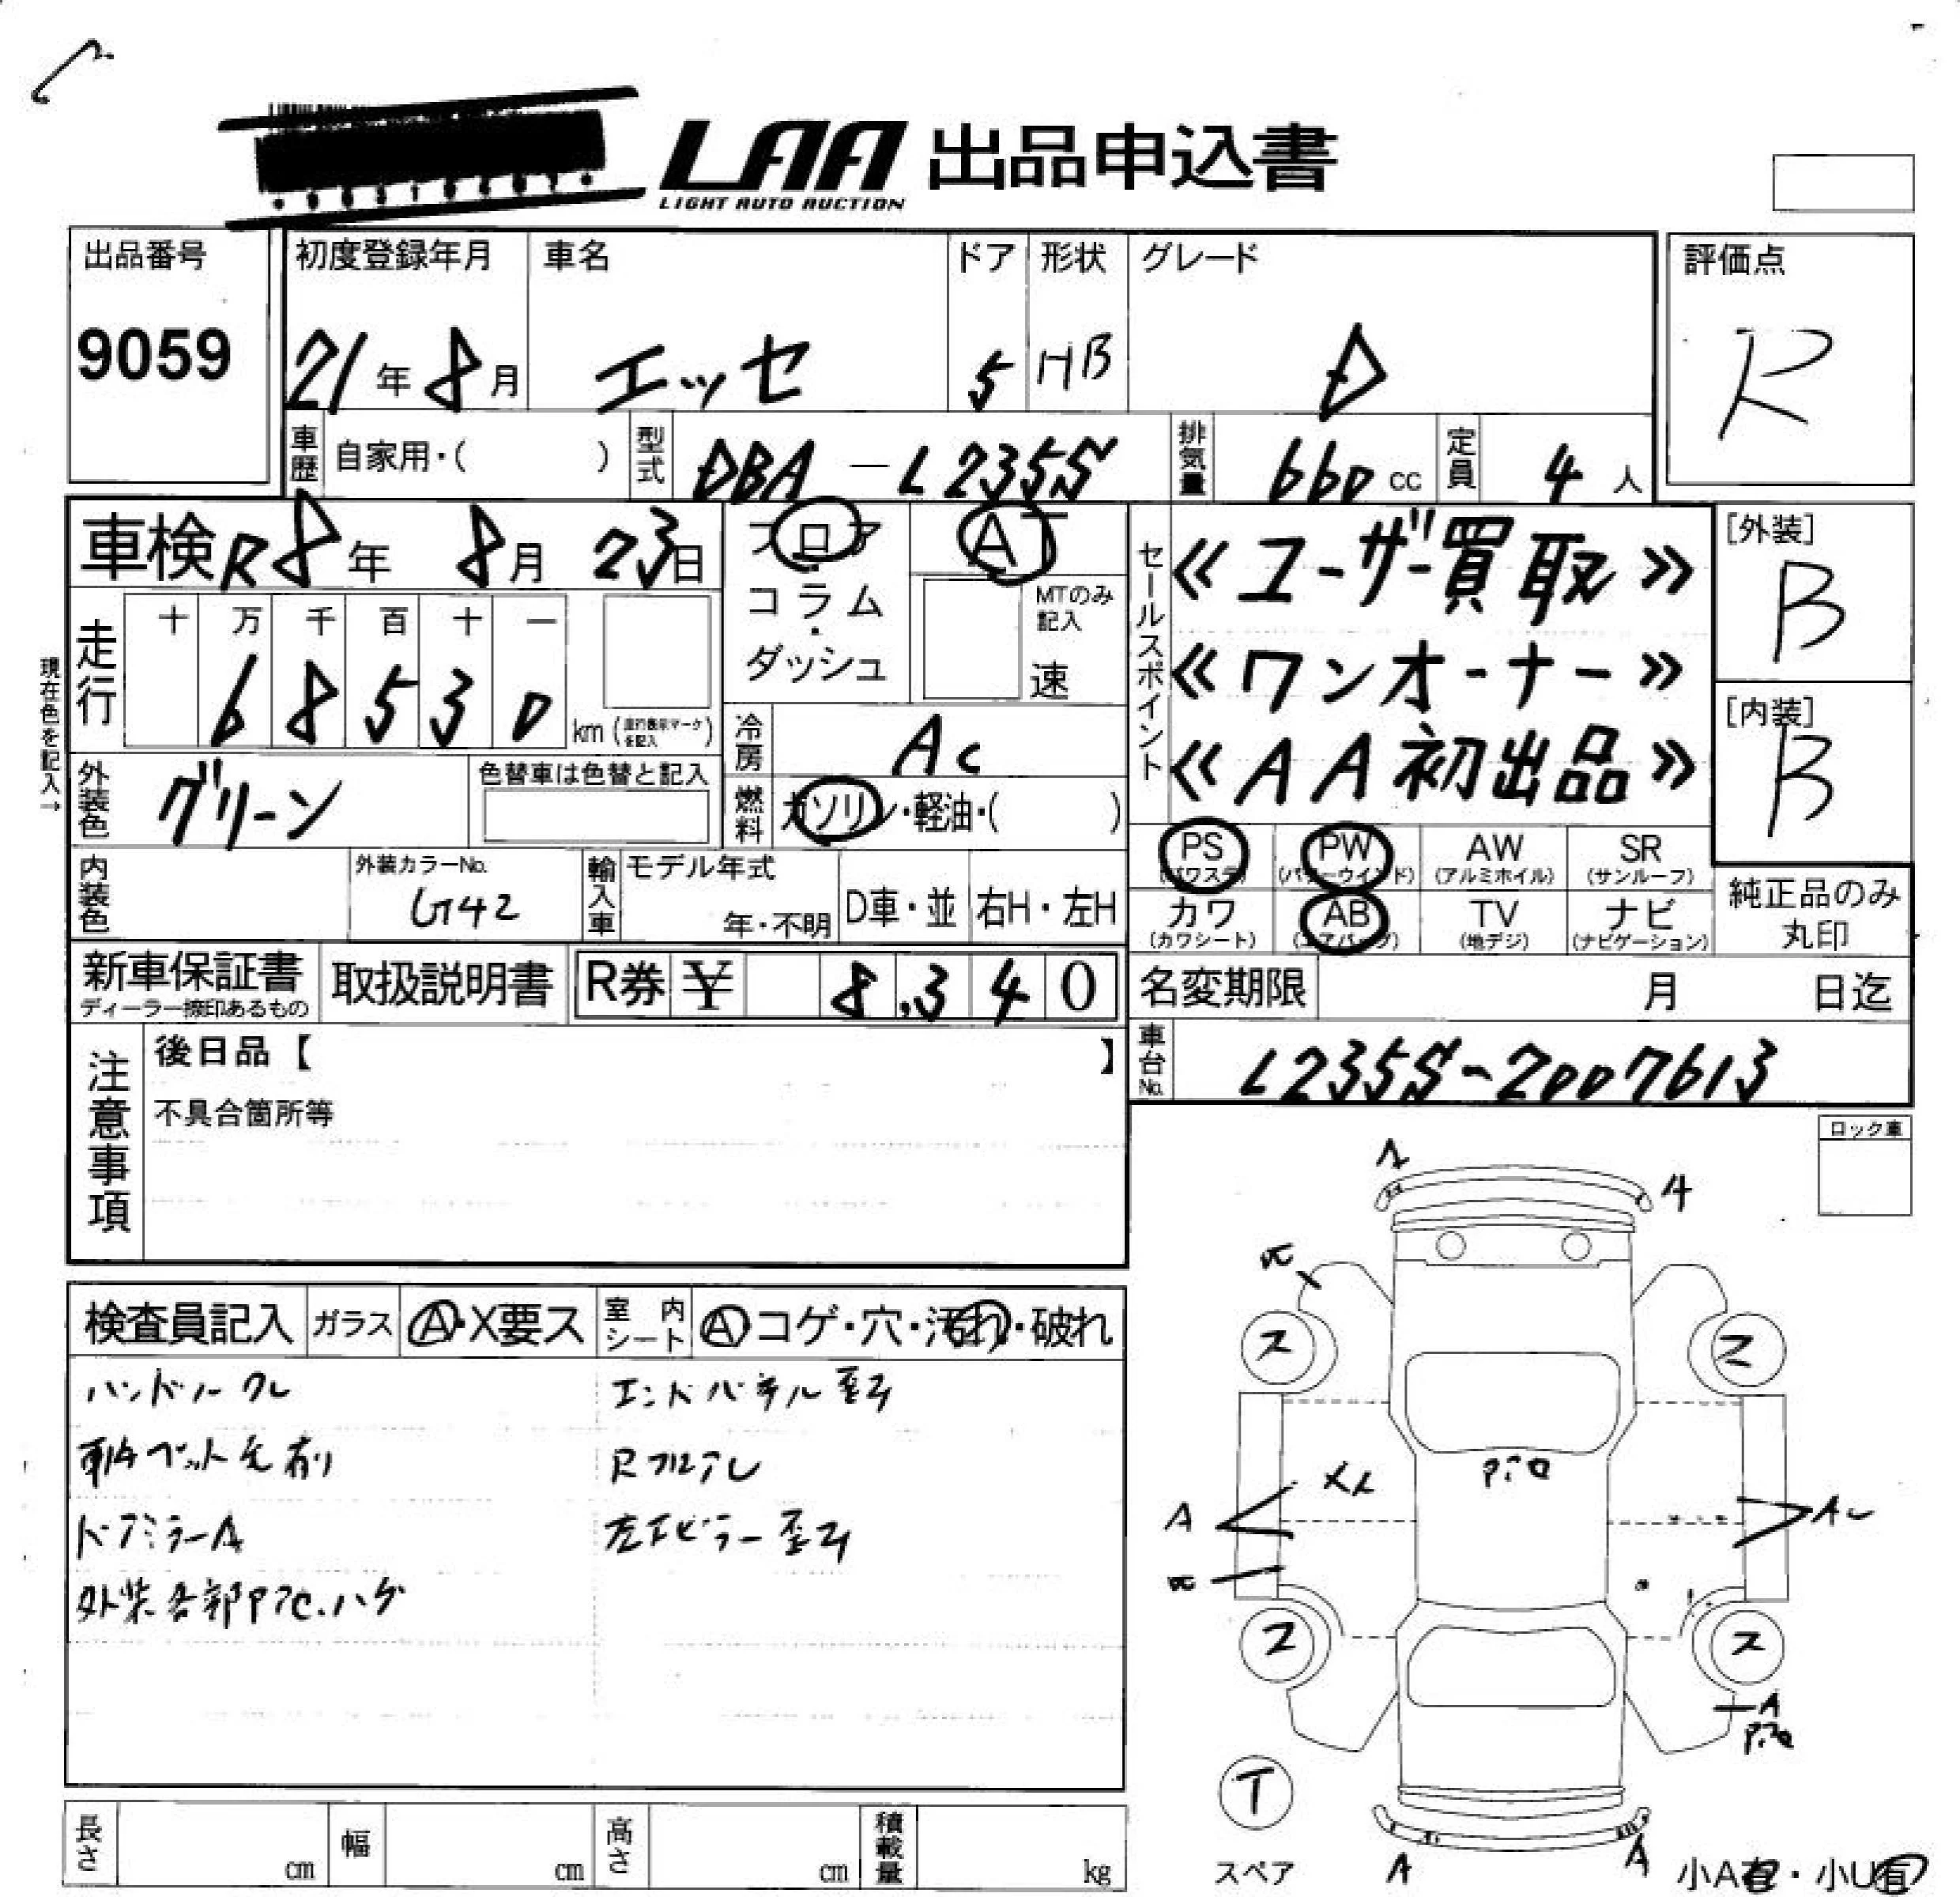 LAA 出品申込書
LIGHT AUTO AUCTION
出品番号 初度登録年月 車名 ドア 形状 グレード 評価点
9059 21年 8月 エッセ 5 HB D R
車歴 自家用・( ) 型式 DBA-L235S 排気量 660 cc 定員 4 人
車検 R8年 8月 23日 フロア・コラム・ダッシュ AT
MTのみ記入 速
現在色を記入→
走行 十 万 千 百 十 一
6 8 5 3 0 km (走行表示マークを記入)
冷房 AC
セールスポイント
≪ユーザー買取≫
≪ワンオーナー≫
≪AA初出品≫
[外装] B
[内装] B
外装色 グリーン 色替車は色替と記入
燃料 ガソリン・軽油・( )
内装色 外装カラーNo. G42 輸入車 モデル年式 年・不明 D車・並 右H・左H
PS (パワステ) PW (パワーウインド) AW (アルミホイル) SR (サンルーフ)
カワ (カワシート) AB (エアバッグ) TV (地デジ) ナビ (ナビゲーション)
純正品のみ丸印
新車保証書 ディーラー捺印あるもの 取扱説明書 R券 ¥ 8,340
名変期限 月 日迄
車台No. L235S-2007613
注意事項 後日品【 】
不具合箇所等
ロック車
検査員記入 ガラス A・X要ス 室内シート A・コゲ・穴・汚れ・破れ
ハンドルクレ エンドパネル歪み
Rフロアレ
ドアミラーA
外装各部PアC.ハゲ
A 4
ス ス
A
ス ス
A
T
スペア A A 小A有・小U有
長さ cm 幅 cm 高さ cm 積載量 kg